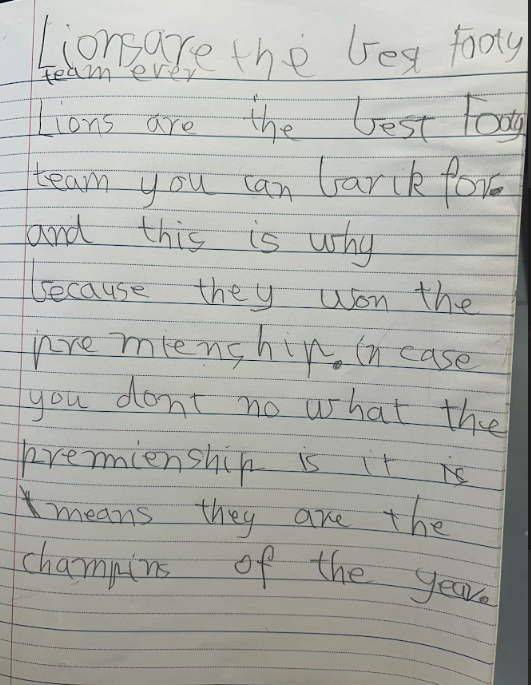 Lions are the best footy
team ever
Lions are the best footy
team you can barik for.
and this is why
because they won the
premienship. in case
you dont no what the
premienship is it is
means they are the
champins of the year.